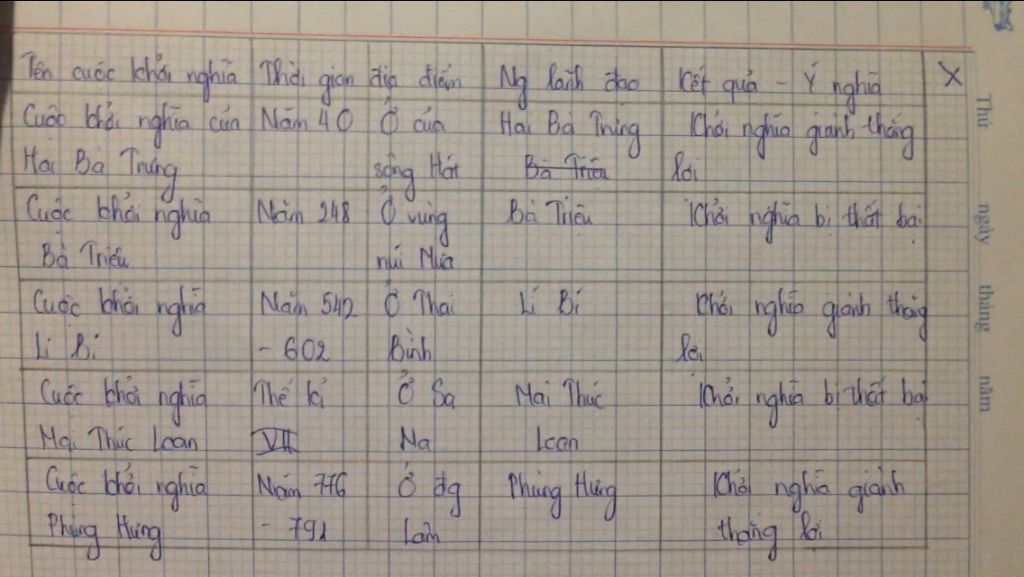 Tên cuộc khởi nghĩa Thời gian địa điểm Ng lãnh đạo Kết quả - Ý nghĩa X
Cuộc khởi nghĩa của Năm 40 Ở cửa Hai Bà Trưng Khởi nghĩa giành thắng
Hai Bà Trưng sông Hát Bà Triệu lợi
Cuộc khởi nghĩa Năm 248 Ở vùng Bà Triệu Khởi nghĩa bị thất bại
Bà Triệu núi Nưa
Cuộc khởi nghĩa Năm 542 Ở Thái Lí Bí Khởi nghĩa giành thắng
Lí Bí - 602 Bình lợi
Cuộc khởi nghĩa Thế kỉ Ở Sa Mai Thúc Khởi nghĩa bị thất bại
Mai Thúc Loan VII Na Loan
Cuộc khởi nghĩa Năm 776 Ở đg Phùng Hưng Khởi nghĩa giành
Phùng Hưng - 791 Lâm thắng lợi
Thứ ngày tháng năm